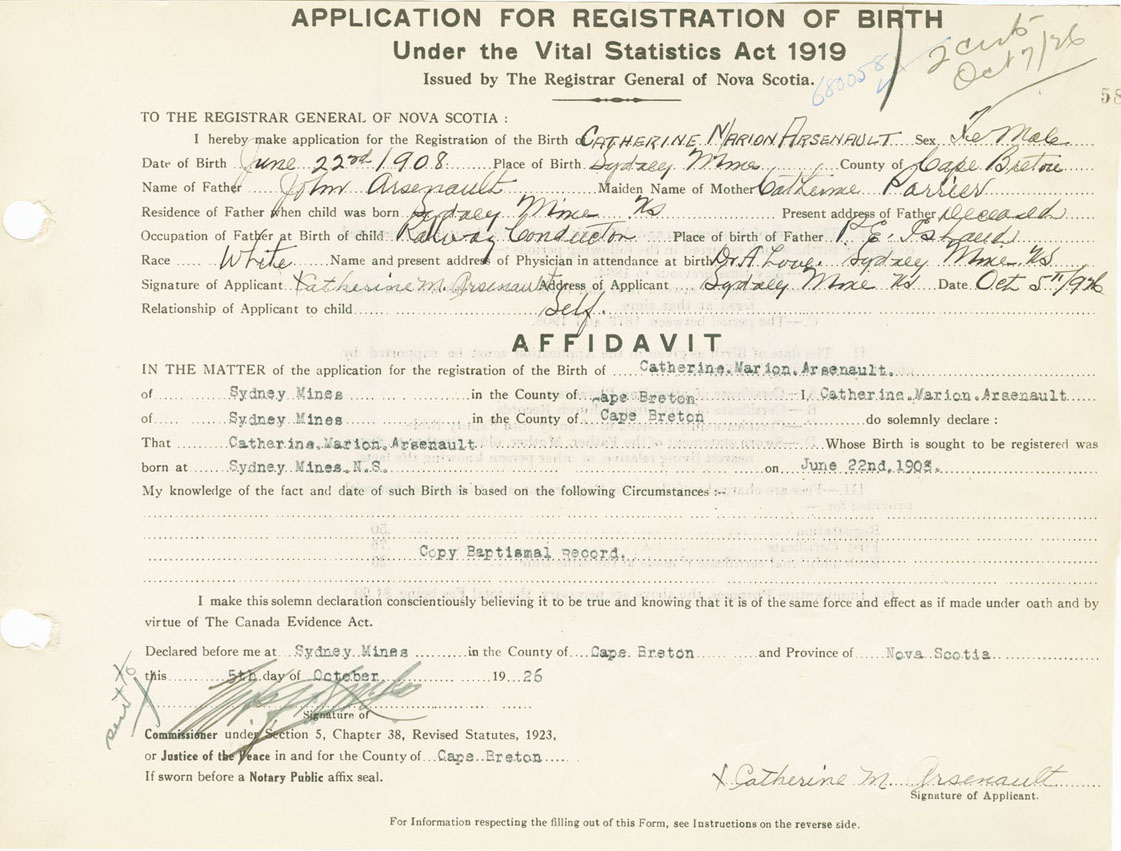 APPLICATION FOR REGISTRATION OF BIRTH
Under the Vital Statistics Act 1919
Issued by The Registrar General of Nova Scotia.
680058
2 certs
Oct 7/26
58
TO THE REGISTRAR GENERAL OF NOVA SCOTIA :
I hereby make application for the Registration of the Birth of CATHERINE MARION ARSENAULT Sex Fe Male
Date of Birth June 22nd 1908 Place of Birth Sydney Mines County of Cape Breton
Name of Father John Arsenault Maiden Name of Mother Catherine Parrier
Residence of Father when child was born Sydney Mines Ns Present address of Father Deceased
Occupation of Father at Birth of child Railway Conductor Place of birth of Father P. E. Island
Race White Name and present address of Physician in attendance at birth Dr A. Love. Sydney Mines Ns
Signature of Applicant X Catherine M. Arsenault Address of Applicant Sydney Mines Ns Date Oct 5th/926
Relationship of Applicant to child Self.
AFFIDAVIT
IN THE MATTER of the application for the registration of the Birth of Catherine.Marion.Arsenault.
of Sydney Mines in the County of Cape Breton I, Catherine.Marion.Arsenault
of Sydney Mines in the County of Cape Breton do solemnly declare :
That Catherine.Marion.Arsenault Whose Birth is sought to be registered was
born at Sydney Mines.N.S. on June 22nd,1908.
My knowledge of the fact and date of such Birth is based on the following Circumstances :--
Copy Baptismal record.
I make this solemn declaration conscientiously believing it to be true and knowing that it is of the same force and effect as if made under oath and by
virtue of The Canada Evidence Act.
Declared before me at Sydney Mines in the County of Cape Breton and Province of Nova Scotia
this 5th day of October 19 26
sent to
Signature of
Commissioner under Section 5, Chapter 38, Revised Statutes, 1923,
or Justice of the Peace in and for the County of Cape Breton
If sworn before a Notary Public affix seal.
X Catherine M. Arsenault
Signature of Applicant.
For Information respecting the filling out of this Form, see Instructions on the reverse side.